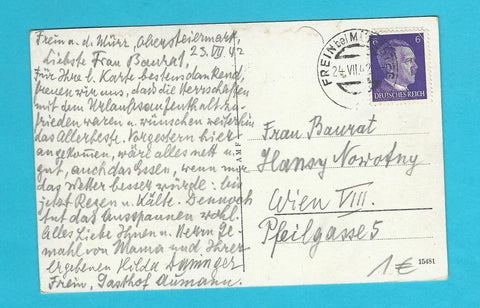 Frein a. d. Mürz, Obersteiermark,
23. VII. 42
Liebste Frau Baurat,
Für Ihre l. Karte bestens dankend,
freuen wir uns, dass die Herrschaften
mit dem Urlaubsaufenthalt zu-
frieden waren u. wünschen weiterhin
das Allerbeste. Vorgestern hier
angekommen, wäre alles nett u.
gut, auch das Essen, wenn nur
das Wetter besser würde. bis
jetzt Regen u. Kälte. Dennoch
tut das Ausspannen wohl.
Alles Liebe Ihnen u. Herrn Ge-
mahl von Mama und Ihrer
ergebenen Hilda
Frein, Gasthof Aumann.
FREIN bei
24. VII. 42
6 6
DEUTSCHES REICH
Frau Baurat
Hansy Nowotny
Wien VIII.
Pfeilgasse 5
15481
1 €